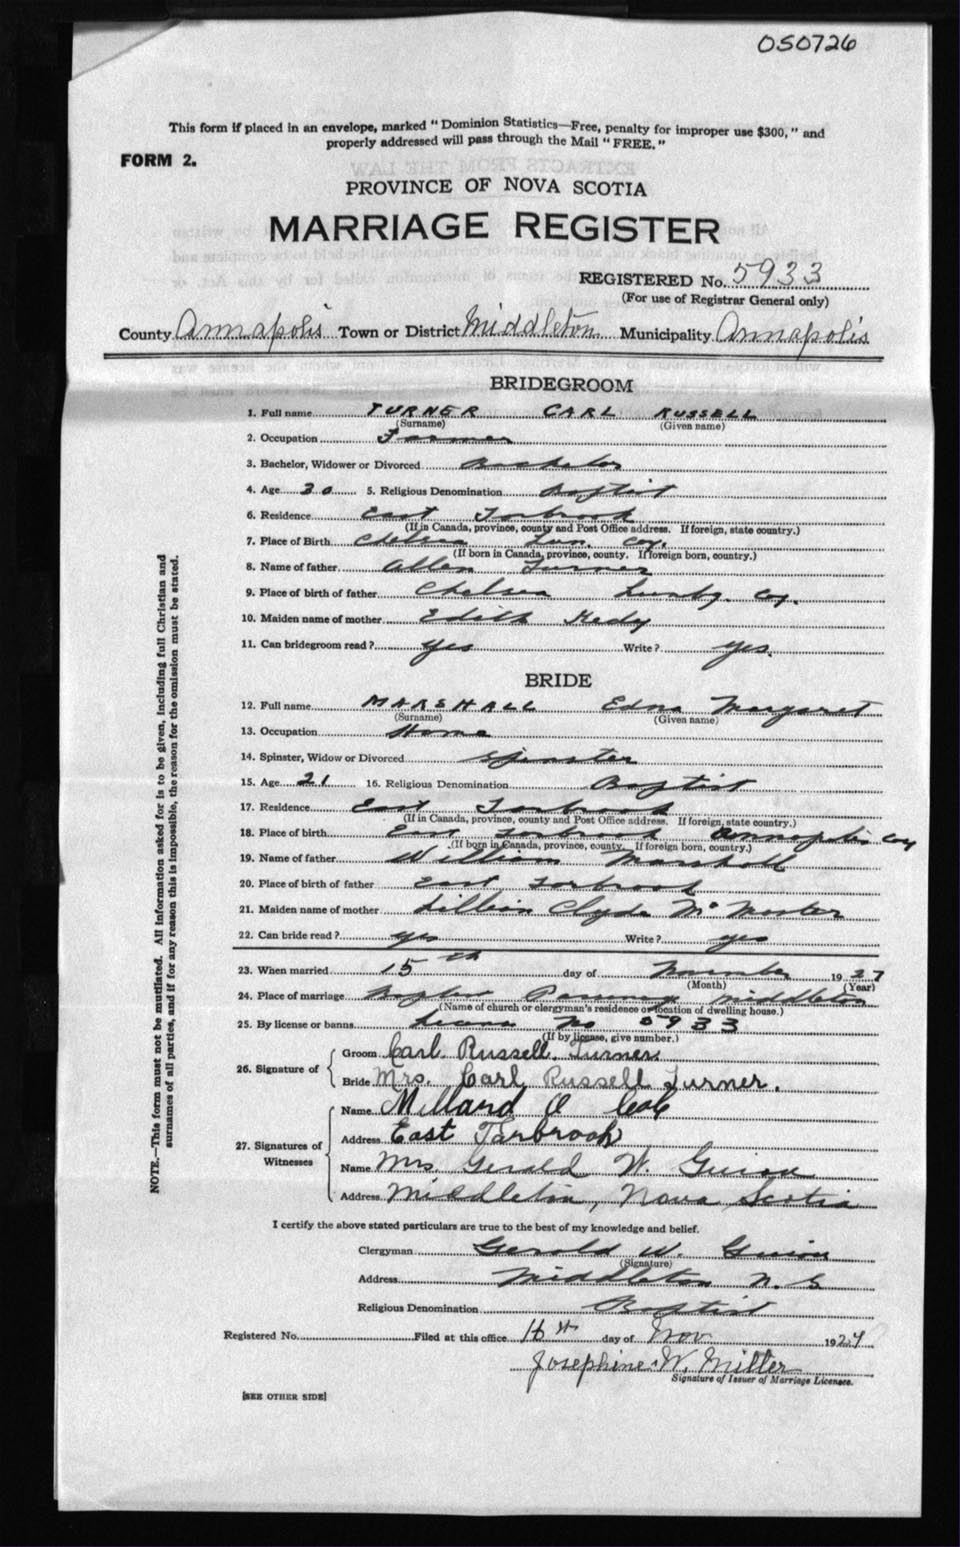 050726
This form if placed in an envelope, marked " Dominion Statistics—Free, penalty for improper use $300, " and
properly addressed will pass through the Mail " FREE. "
FORM 2.
PROVINCE OF NOVA SCOTIA
MARRIAGE REGISTER
REGISTERED No. 5933
(For use of Registrar General only)
County Annapolis Town or District Middleton Municipality Annapolis
BRIDEGROOM
1. Full name TURNER CARL RUSSELL
(Surname) (Given name)
2. Occupation Farmer
3. Bachelor, Widower or Divorced Bachelor
4. Age 30 5. Religious Denomination Baptist
6. Residence East Torbrook
(If in Canada, province, county and Post Office address. If foreign, state country.)
7. Place of Birth Chelsea Lun. Coy.
(If born in Canada, province, county. If foreign born, country.)
8. Name of father Allen Turner
9. Place of birth of father Chelsea Lunbg. Coy.
10. Maiden name of mother Edith Kedy
11. Can bridegroom read? yes Write? yes.
BRIDE
12. Full name MARSHALL Edna Margaret
(Surname) (Given name)
13. Occupation Home
14. Spinster, Widow or Divorced Spinster
15. Age 21 16. Religious Denomination Baptist
17. Residence East Torbrook
(If in Canada, province, county and Post Office address. If foreign, state country.)
18. Place of birth East Torbrook Annapolis Coy
(If born in Canada, province, county. If foreign born, country.)
19. Name of father William Marshall
20. Place of birth of father East Torbrook
21. Maiden name of mother Lillian Clyde McMaster
22. Can bride read? yes Write? yes
23. When married 15th day of November 1927
(Month) (Year)
24. Place of marriage Baptist Parsonage Middleton
(Name of church or clergyman's residence or location of dwelling house.)
25. By license or banns No 5933
(If by license, give number.)
26. Signature of
Groom Carl Russell Turner
Bride Mrs. Carl Russell Turner.
27. Signatures of Witnesses
Name Millard
Address East Torbrook
Name Mrs. Gerald W. Guiou
Address Middleton, Nova Scotia
I certify the above stated particulars are true to the best of my knowledge and belief.
Clergyman Gerald W. Guiou
(Signature)
Address Middleton N.S
Religious Denomination Baptist
Registered No. Filed at this office 16th day of Nov 1927
Josephine W. Miller
Signature of Issuer of Marriage Licenses.
[SEE OTHER SIDE]
NOTE.—This form must not be mutilated. All information asked for is to be given, including full Christian and
surnames of all parties, and if for any reason this is impossible, the reason for the omission must be stated.